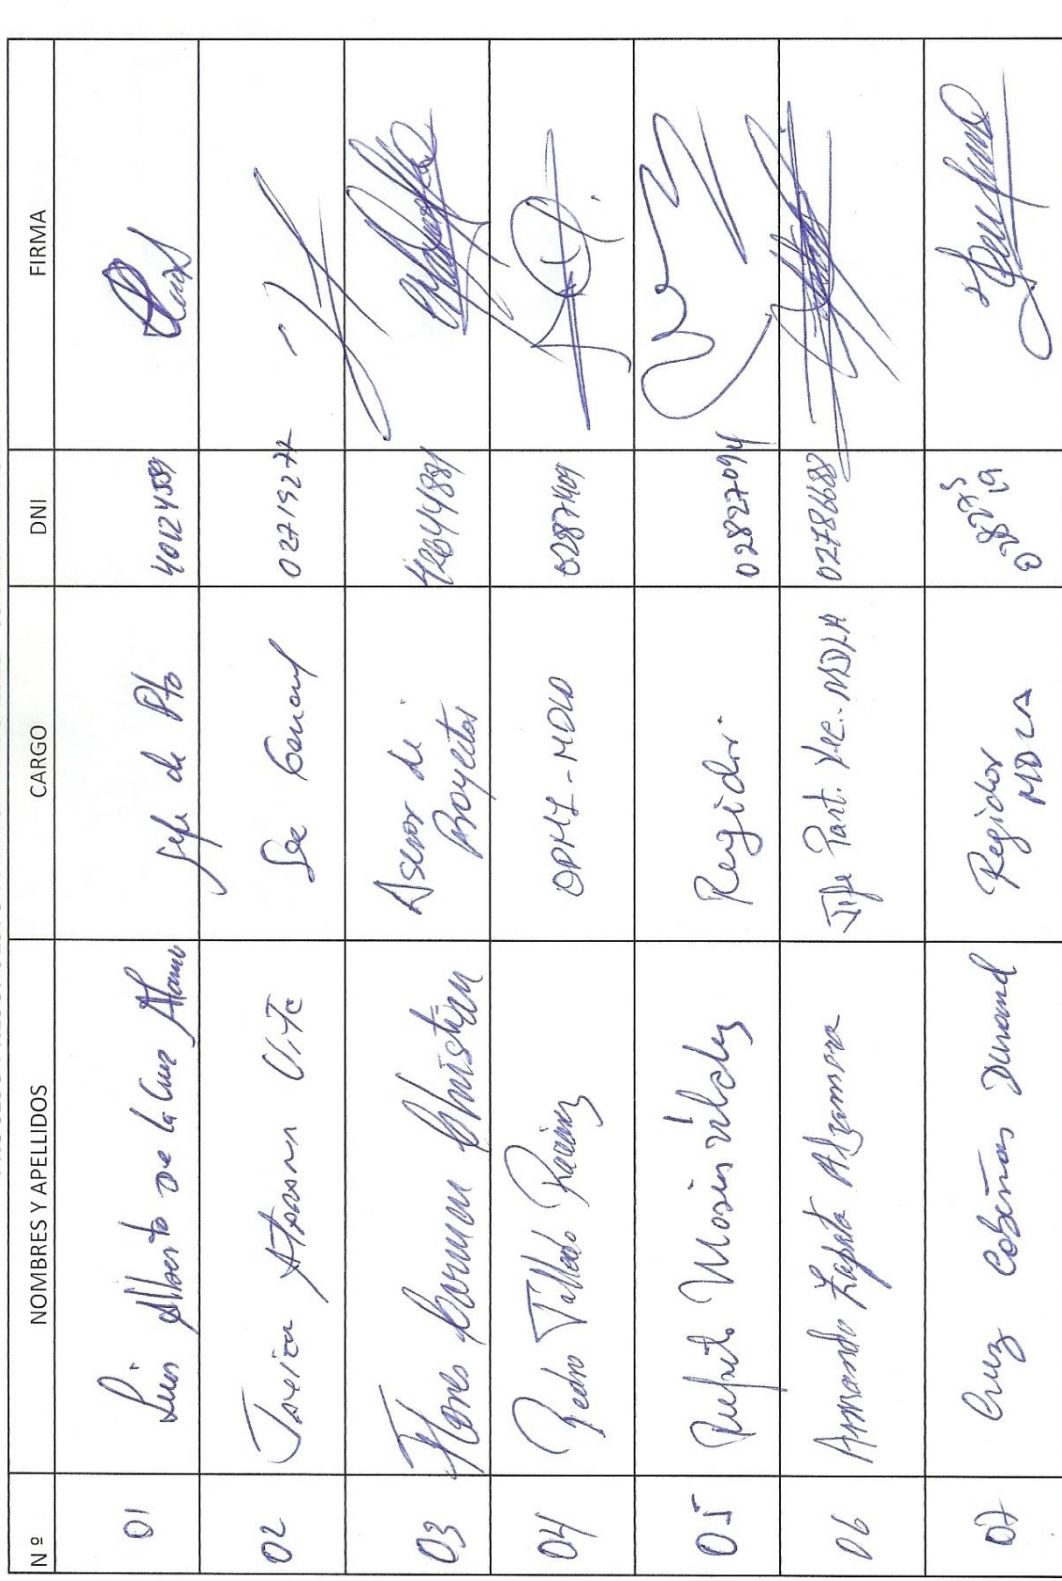 Nº NOMBRES Y APELLIDOS CARGO DNI FIRMA
01 Luis Alberto De la Cruz Alamo Jefe de Pto 40124559
02 Javier Atarama Vite Sec General 02719277
03 Flores Carmen Christian Asesor de
Proyectos
04 Pedro Talledo Ramirez OPMI-MDLA 02871409
05 Regidor 02827094
06 Armando Zapata Alzamora Jefe Part. Vec. MDLA 02786688
07 Cruz Cobeñas Durand Regidor
MDLA